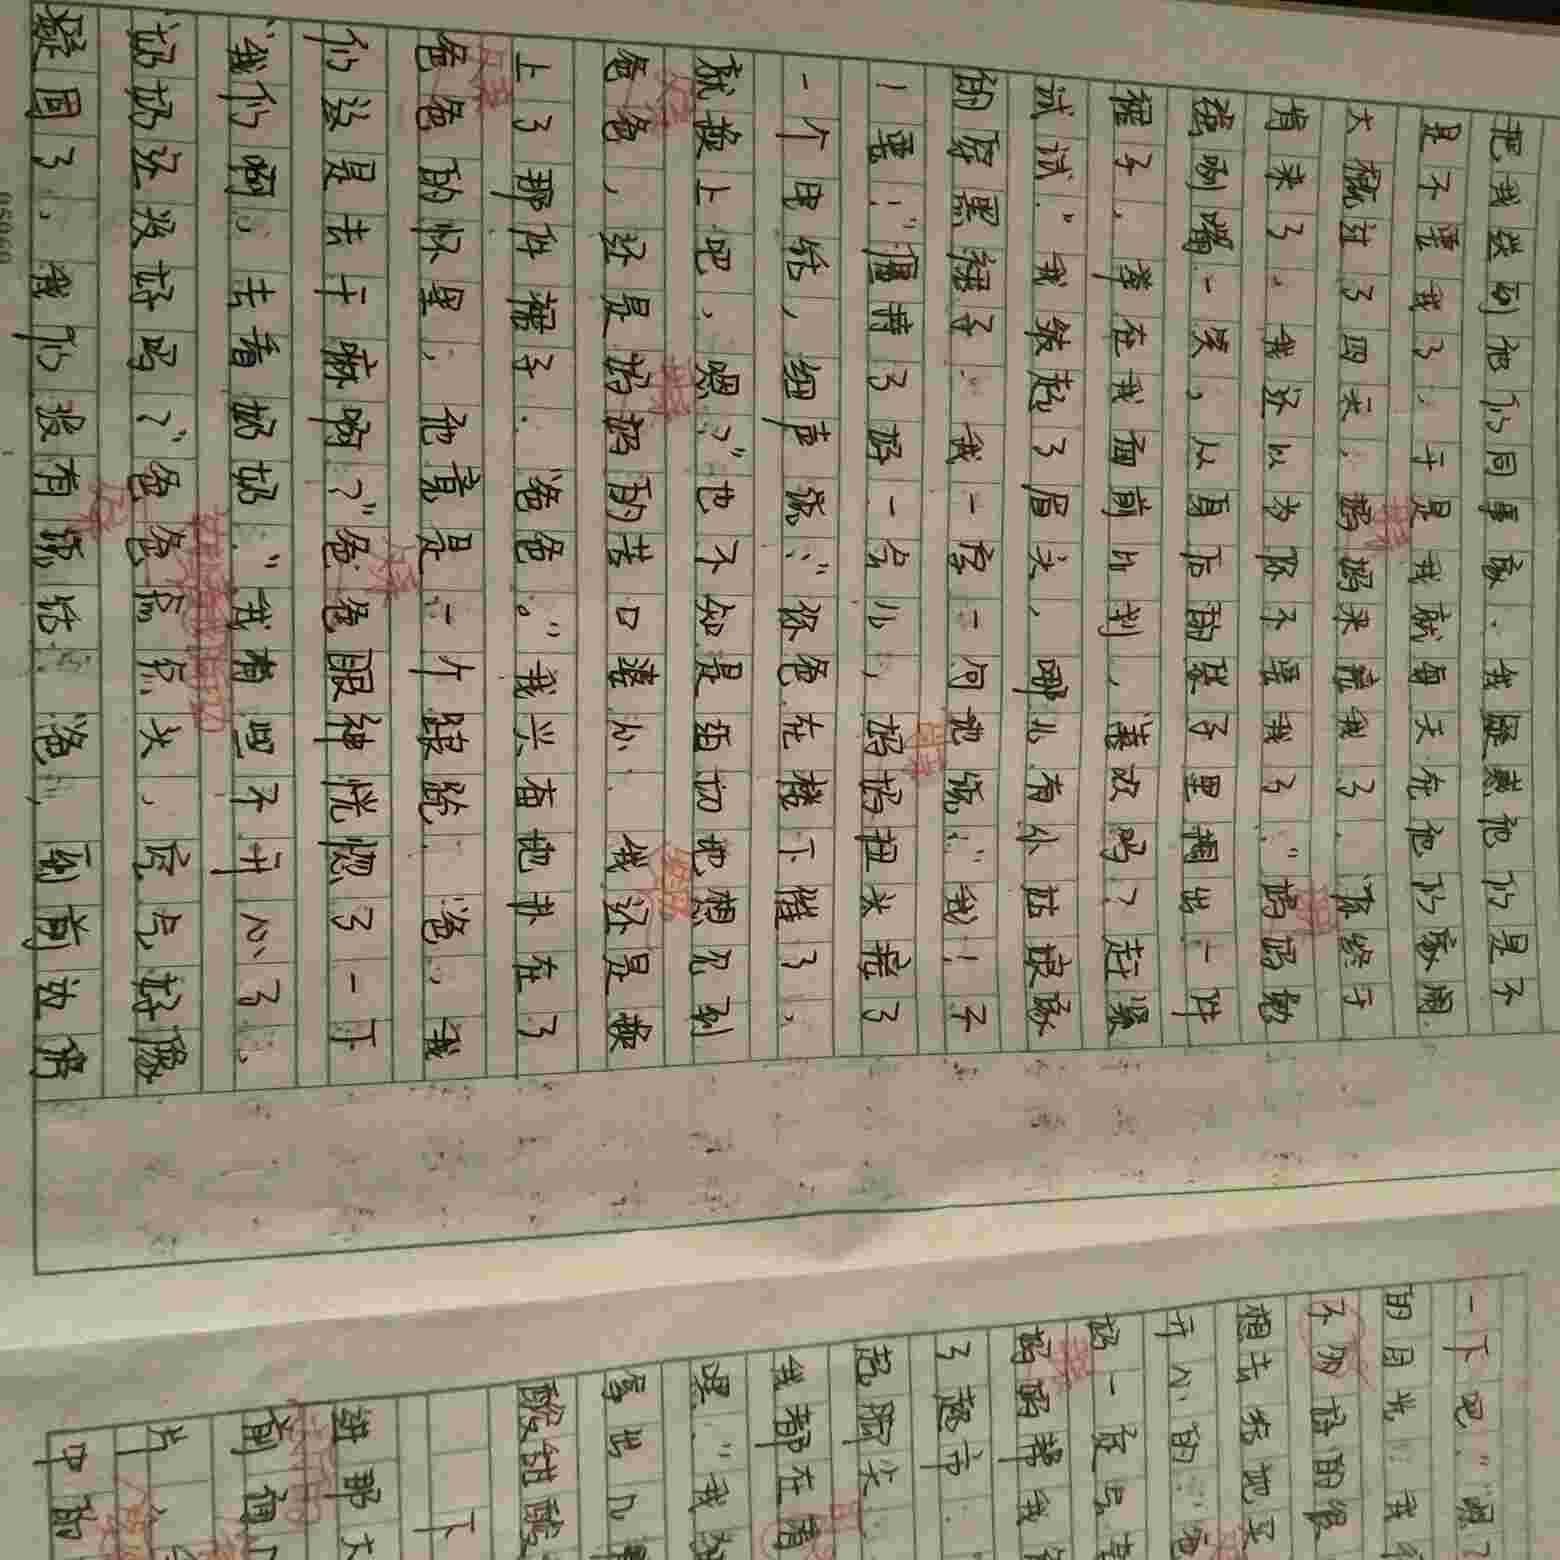 把我送到他们同事家.我疑惑他们是不
是不要我了.于是我就每天在他们家闹.
大概过了四天,妈妈来接我了.“你终于
肯来了.我还以为你不要我了.”妈妈勉
强咧嘴一笑,从身后的袋子里掏出一件
裙子.举在我面前比划,“喜欢吗?赶紧
试试.”我皱起了眉头,哪儿有小姑娘家
的穿黑裙子.我一字一句地说:“我!不
!要!”僵持了好一会儿,妈妈扭头接了
一个电话,细声说:“你爸在楼下催了,
就换上吧,嗯?”也不知是迫切地想见到
爸爸,还是妈妈的苦口婆心.我还是换
上了那件裙子.“爸爸.”我兴奋地扑在了
爸爸的怀里,他竟是一个踉跄.“爸,我
们这是去干嘛啊?”爸爸眼神恍惚了一下
“我们啊,去看奶奶.”我有些不开心了.
“奶奶还没好吗?”爸爸点点头,空气好像
凝固了.我们没有说话.“爸,到前边停
一下吧.”“嗯?
的目光.我
想去给她买
开心的.
奶一定
妈妈帮我
了超市.
起脚尖
我都在
“我
拿出几
酸甜酸
下
进那大
片
中的